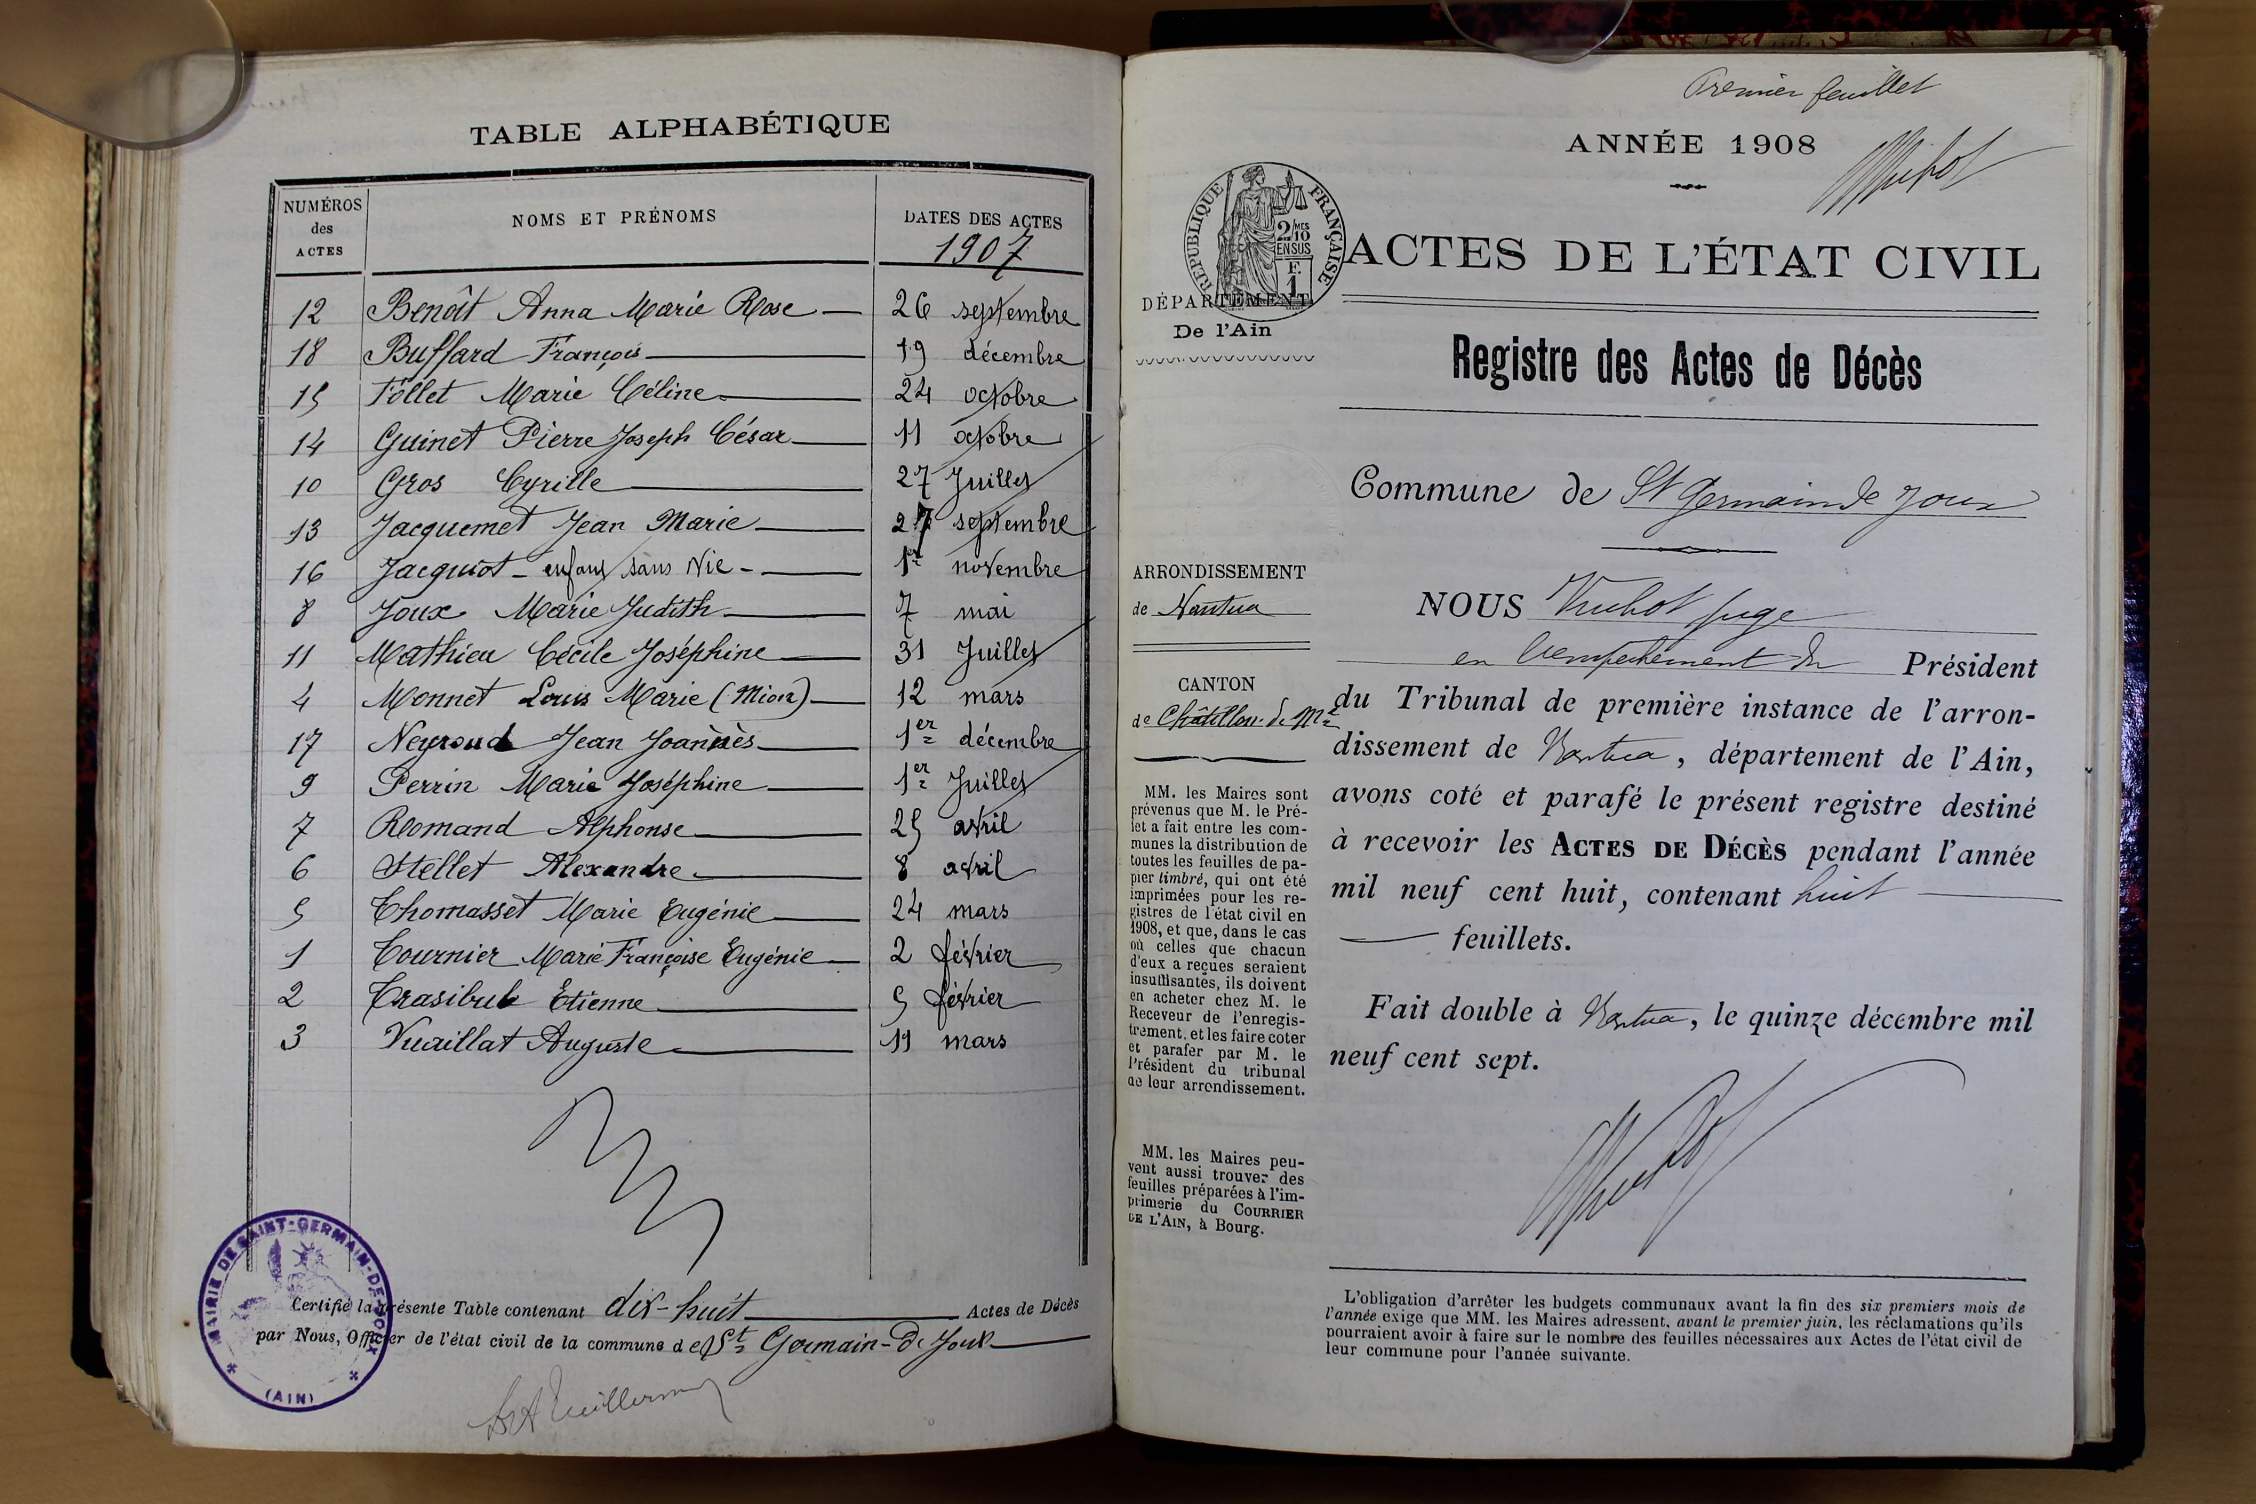 TABLE ALPHABÉTIQUE
NUMÉROS des ACTES
NOMS ET PRÉNOMS
DATES DES ACTES
1907
12 Benoît Anna Marie Rose 26 septembre
18 Buffard François 19 décembre
15 Follet Marie Céline 24 octobre
14 Guinet Pierre Joseph César 11 octobre
10 Gros Cyrille 27 Juillet
13 Jacquemet Jean Marie 27 septembre
16 Jacquiot - enfant sans vie - 1er novembre
8 Joux Marie Judith 7 mai
11 Mathieu Cécile Joséphine 31 Juillet
4 Monnet Louis Marie (Mion) 12 mars
17 Neyroud Jean Joannès 1er décembre
9 Perrin Marie Joséphine 1er Juillet
7 Romand Alphonse 25 avril
6 Stellet Alexandre 8 avril
5 Thomasset Marie Eugénie 24 mars
1 Tournier Marie Françoise Eugénie 2 février
2 Trasibule Etienne 5 février
3 Vuaillat Auguste 11 mars
Certifié la présente Table contenant dix-huit Actes de Décès
par Nous, Officier de l'état civil de la commune de St Germain-de-Joux
MAIRIE DE SAINT-GERMAIN-DE-JOUX
(AIN)
Premier feuillet
ANNÉE 1908
RÉPUBLIQUE FRANÇAISE
2/10 MES
EN SUS
F. 1
ACTES DE L'ÉTAT CIVIL
DÉPARTEMENT
De l'Ain
Registre des Actes de Décès
Commune de St Germain de Joux
ARRONDISSEMENT
de Nantua
CANTON
de Châtillon-de-Mlle
MM. les Maires sont
prévenus que M. le Pré-
fet a fait entre les com-
munes la distribution de
toutes les feuilles de pa-
pier timbré, qui ont été
imprimées pour les re-
gistres de l'état civil en
1908, et que, dans le cas
où celles que chacun
d'eux a reçues seraient
insuffisantes, ils doivent
en acheter chez M. le
Receveur de l'enregis-
trement, et les faire coter
et parafer par M. le
Président du tribunal
de leur arrondissement.
MM. les Maires peu-
vent aussi trouver des
feuilles préparées à l'im-
primerie du COURRIER
DE L'AIN, à Bourg.
NOUS Vuihot juge
en l'empêchement du Président
du Tribunal de première instance de l'arron-
dissement de Nantua, département de l'Ain,
avons coté et parafé le présent registre destiné
à recevoir les ACTES DE DÉCÈS pendant l'année
mil neuf cent huit, contenant huit
feuillets.
Fait double à Nantua, le quinze décembre mil
neuf cent sept.
L'obligation d'arrêter les budgets communaux avant la fin des six premiers mois de
l'année exige que MM. les Maires adressent, avant le premier juin, les réclamations qu'ils
pourraient avoir à faire sur le nombre des feuilles nécessaires aux Actes de l'état civil de
leur commune pour l'année suivante.